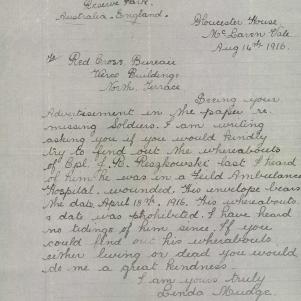 Reserve Park,
Australia. England.
Gloucester House,
McLaren Vale
Aug 14th, 1916.
To
Red Cross Bureau
Verco Buildings
North Terrace
Seeing your
Advertisement in the paper re
missing Soldiers. I am writing
asking you if you would kindly
try to find out the whereabouts
of Cpl J. B. Pleszkowski last I heard
of him he was in a Field Ambulance
Hospital, wounded. This envelope bears
the date April 18th, 1916. This whereabouts
& date was prohibited. I have heard
no tidings of him since. If you
could find out his whereabouts
either living or dead you would
do me a great kindness.
I am yours truly
Linda Mudge.